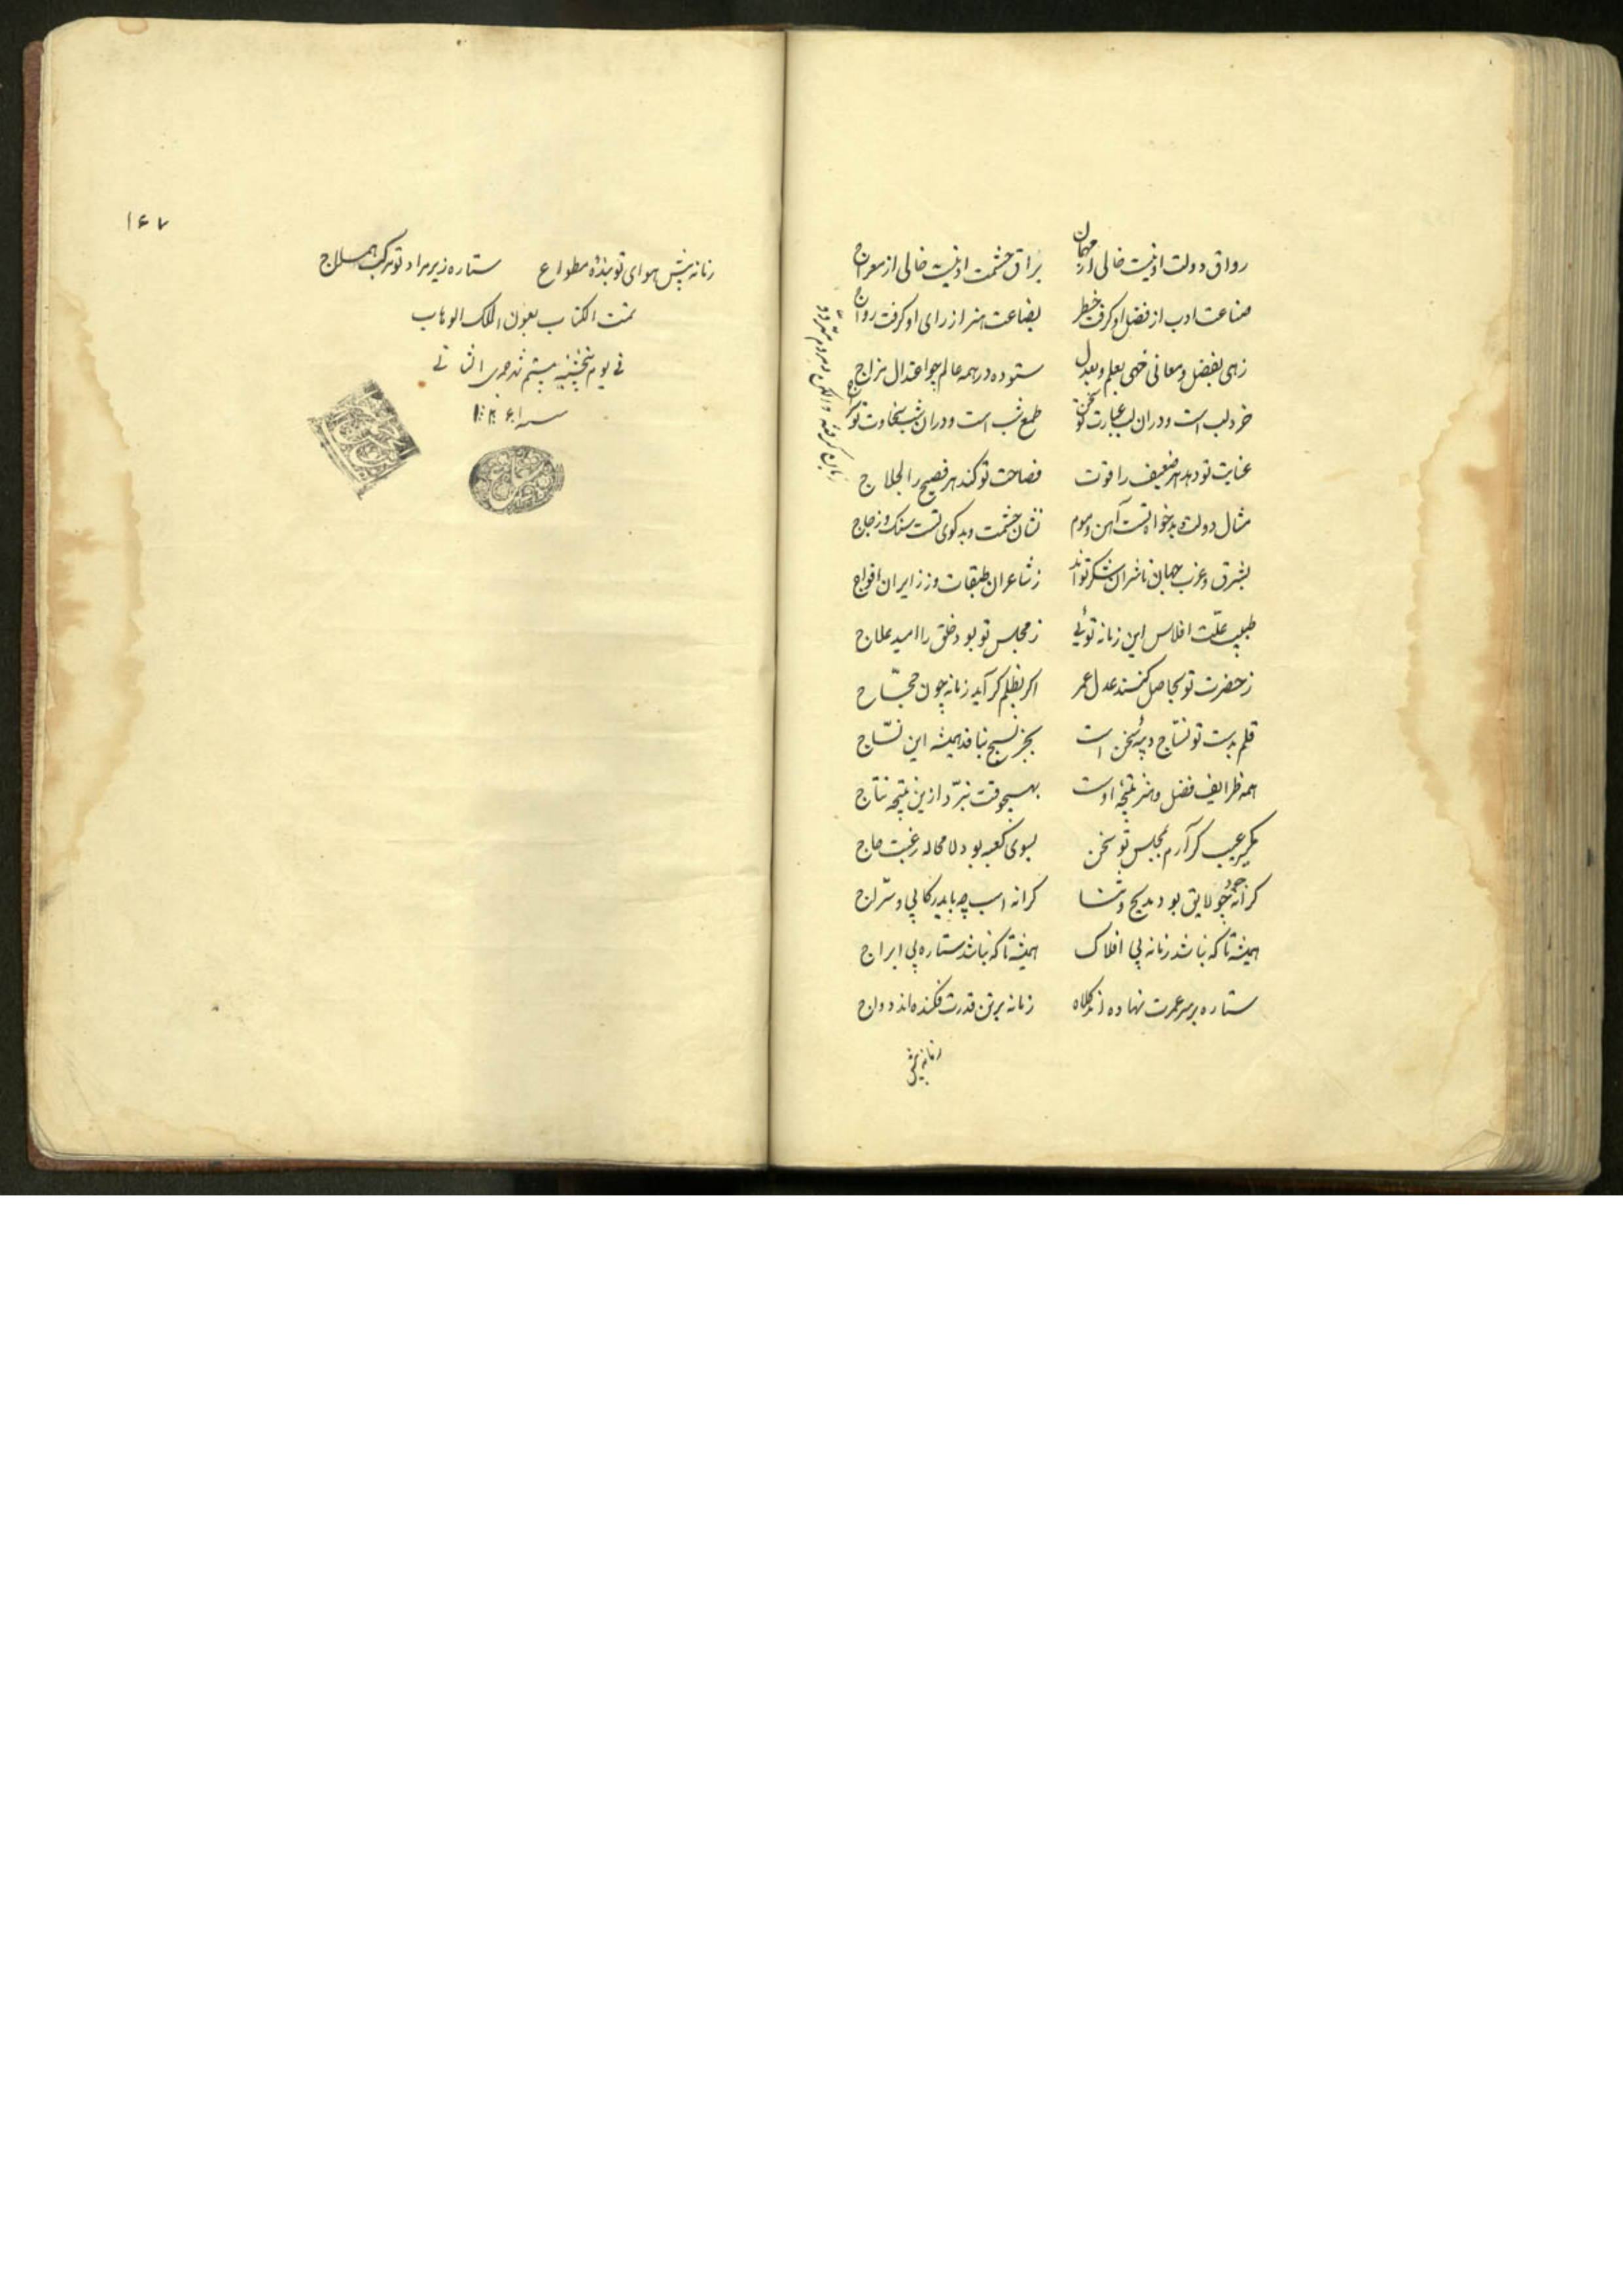 رواق دولت او نیست خالی از مهمان    براق حشمت او نیست خالی از معراج
صناعت ادب از فضل او گرفت خطر    بضاعت هنر از رای او گرفت رواج
زهی بفضل و معانی خهی بعلم و بعدل    ستوده در همه عالم چو اعتدال مزاج
خرد لب است و در ان لب عبارت تو سخن    طمع شب است و در ان شب سخاوت تو سراج
عنایت تو دهد هر ضعیف را قوت    فصاحت تو کند هر فصیح را لجلاج
مثال دولت و بدخواه تست آهن و موم    نشان حشمت و بدکوی تست سنک و زجاج
بشرق و غرب جهان ناشران شکر تواند    ز شاعران طبقات و ز زایران افواج
طبیب علّت افلاس این زمانه توئی    ز مجلس تو بود خلق را امید علاج
ز حضرت تو بحاصل کنند عدل عمر    اکر بظلم کراید زمانه چون حجّاج
قلم بدست تو نسّاج دیبهٔ سخن است    بجز نسیج نبافد همیشه این نسّاج
همه ظرایف فضل و هنر نتیجهٔ اوست    بهیچوقت نبرّد ازین نتیجه نتاج
مکیر عیب کر آرم بمجلس تو سخن    بسوی کعبه بود لا محاله رغبت حاج
کرانه جود چو لایق بود مدیح و ثنا    کرانه اسب چه باید رکابی و سرّاج
همیشه تا که نباشد زمانه بی افلاک    همیشه تا که نباشد ستاره بی ابراج
ستاره بر سر عمرت نهاده اند کلاه    زمانه بر تن قدرت فکنده اند دواج
زمانه پیش
۱۶۷
زمانه پیش هوای تو بندهٔ مطواع    ستاره زیر مراد تو مرکب هملاج
تمت الکتاب بعون الملک الوهاب
فی یوم پنجشنبه بیستم شهر جمدی الثانی